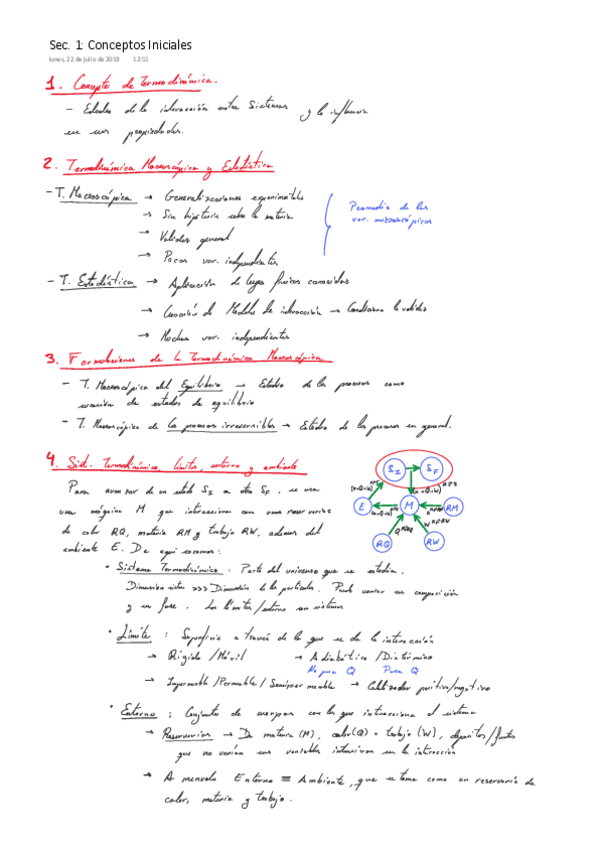 Sec. 1: Conceptos Iniciales
lunes, 22 de julio de 2019 12:51
1. Concepto de Termodinámica.
- Estudio de la interacción entre Sistemas y la influencia
en sus propiedades.
2. Termodinámica Macroscópica y Estadística
- T. Macroscópica → Generalizaciones experimentales
→ Sin hipótesis sobre la materia
→ Validez general
→ Pocas var. independientes
Promedio de las
var. microscópicas
- T. Estadística → Aplicación de leyes físicas conocidas
→ Creación de Modelos de interacción → Condiciona la validez
→ Muchas var. independientes
3. Formulaciones de la Termodinámica Macroscópica
- T. Macroscópica del Equilibrio → Estudio de los procesos como
sucesión de estados de equilibrio
- T. Macroscópica de los procesos irreversibles → Estudio de los procesos en general.
4. Sist. Termodinámico, límites, entorno y ambiente
Para avanzar de un estado SI a otro SF, se usa
una máquina M que interacciona con unas reservorios
de calor RQ, materia RM y trabajo RW, además del
ambiente E. De aquí sacamos:
SI SF
E M RM
RQ RW
• Sistema Termodinámico: Parte del universo que se estudia.
Dimensión sistema >>> Dimensión de las partículas. Puede variar en composición
y en fase. Los límites/entorno son sistemas
• Límite: Superficie a través de la que se da la interacción
→ Rígido/Móvil → Adiabático/Diatérmino
No pasa Q Pasa Q
→ Impermeable/Permeable/Semipermeable → Cortador positivo/negativo
• Entorno: Conjunto de cuerpos con los que interacciona el sistema
→ Reservorios → De materia (M), calor (Q) o trabajo (W), depósitos/fuentes
que no varían sus variables intensivas en la interacción
→ A menudo Entorno ≡ Ambiente, que se toma como un reservorio de
calor, materia y trabajo.